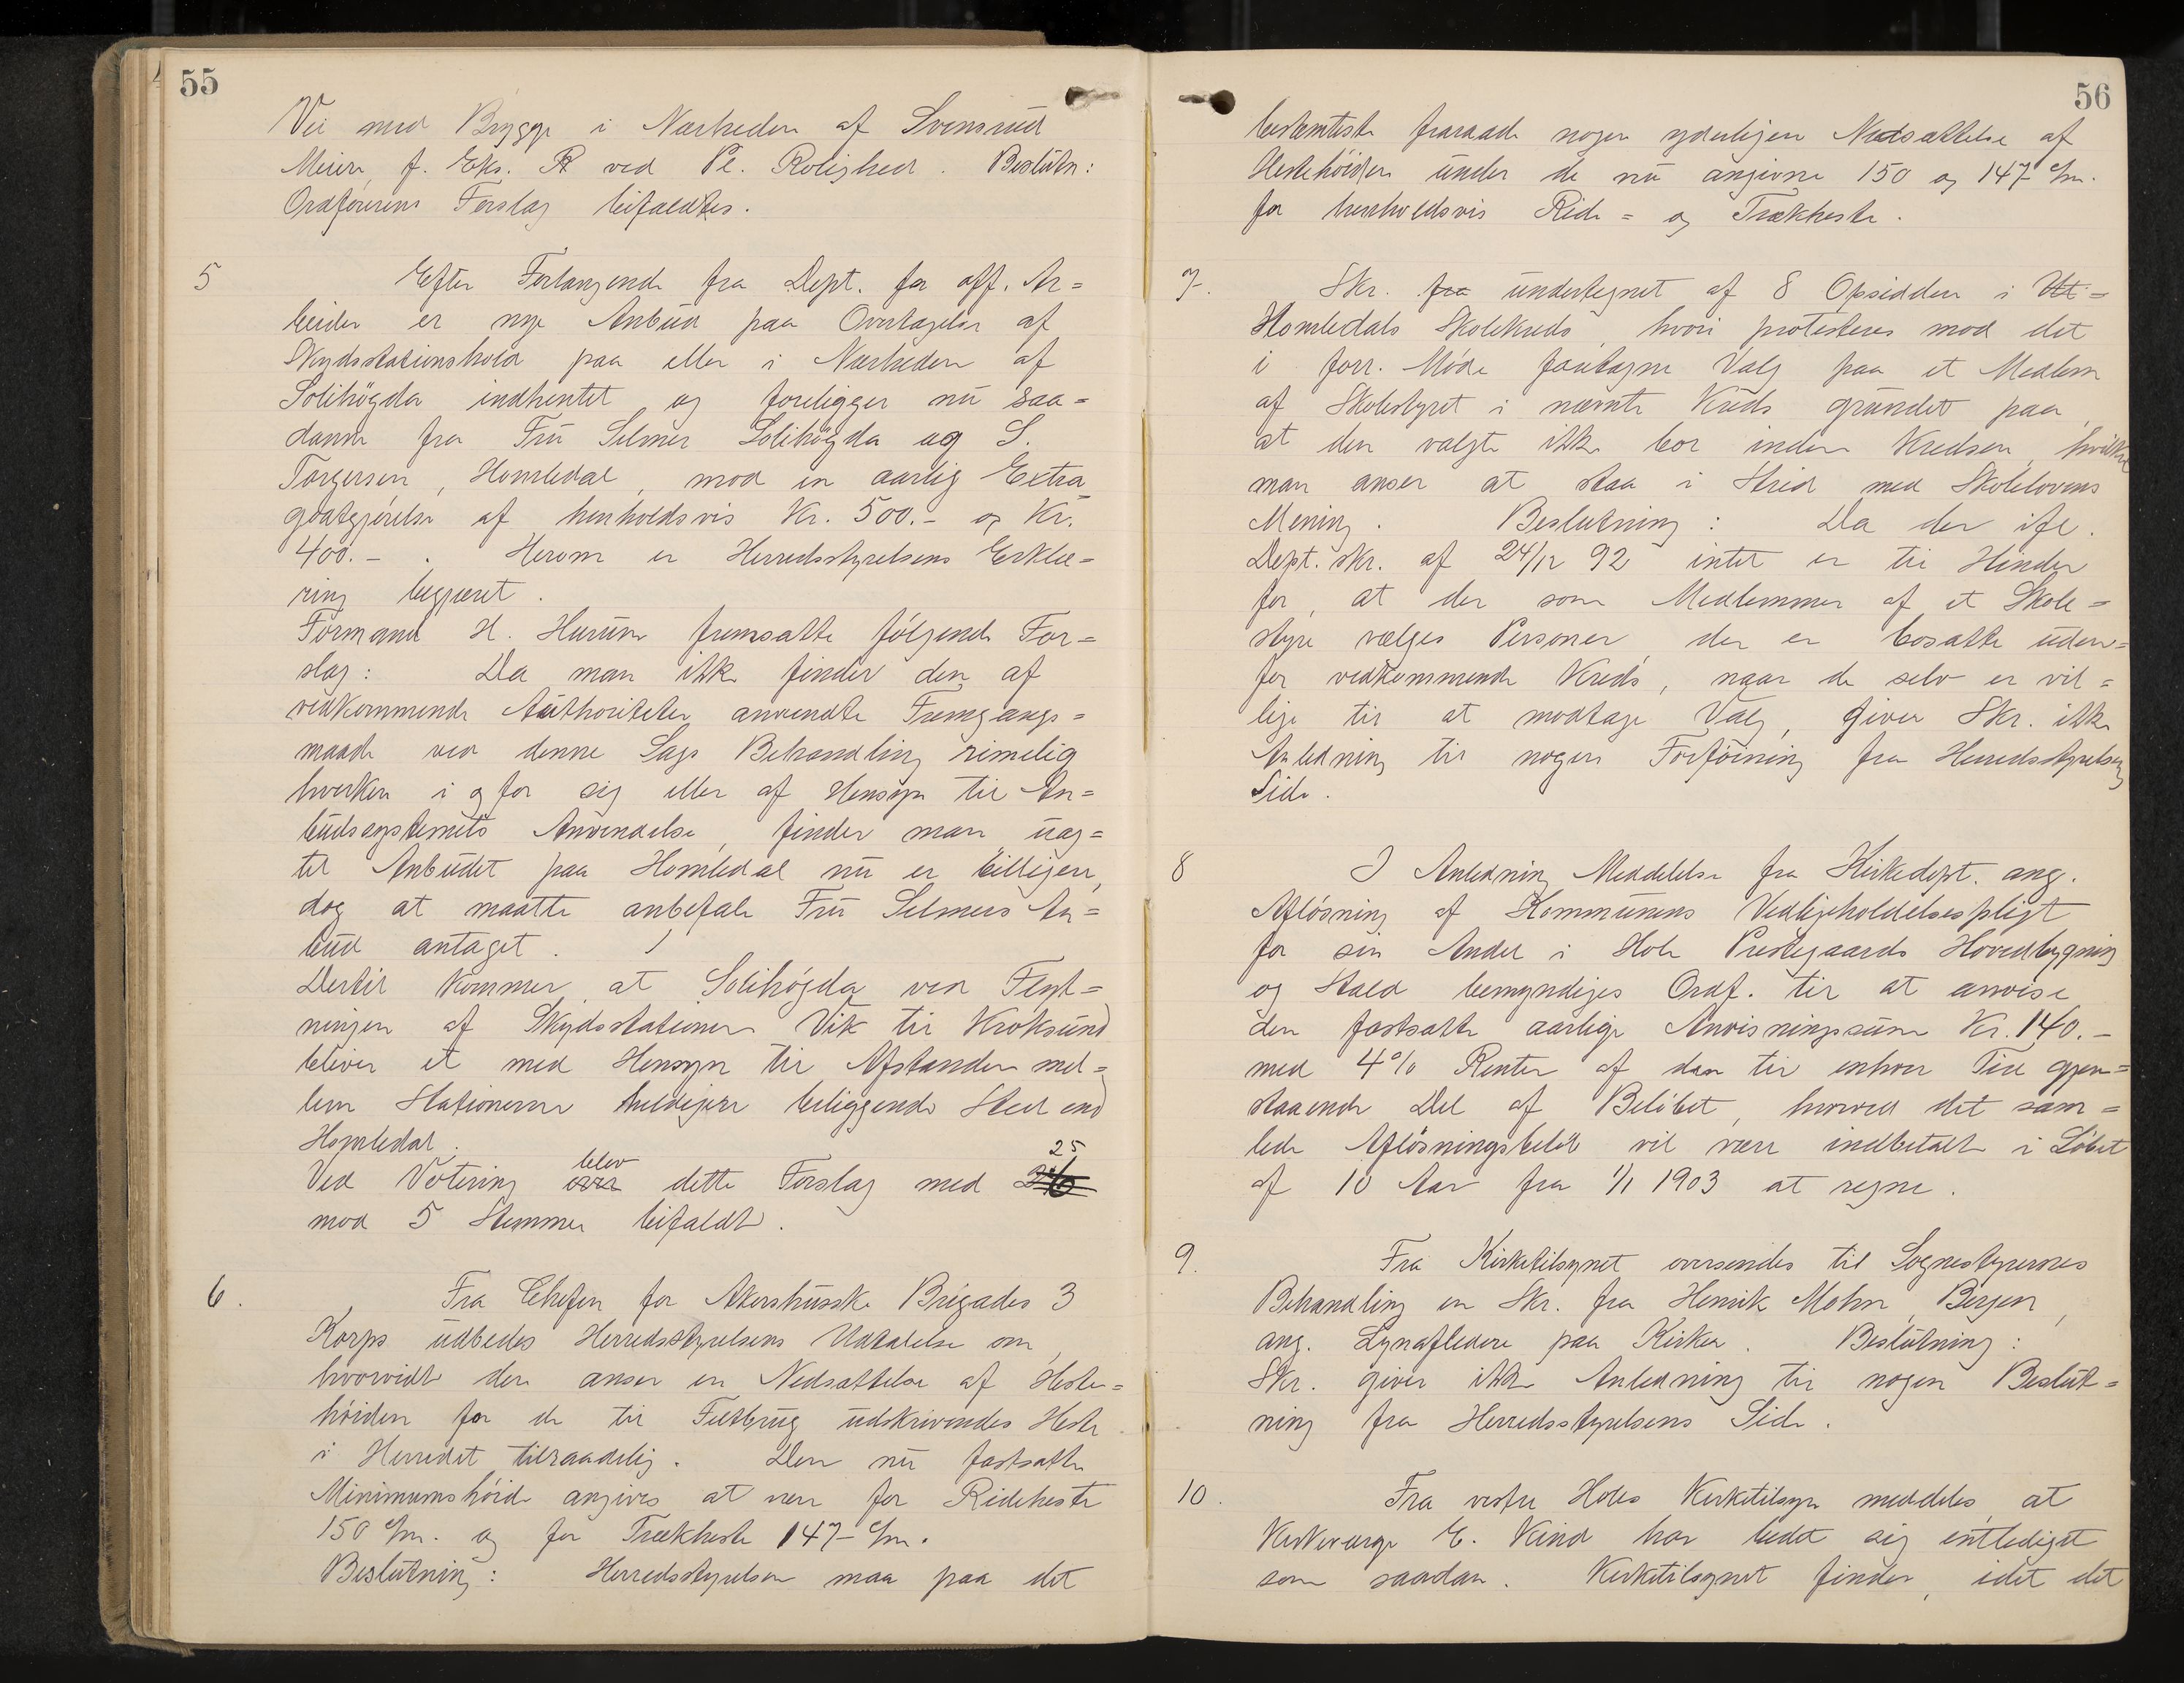 55
Vei med Brygge i Nærheden af Svensrud
Meieri, f. Eks. ved Pl. Rolighed. Beslutn:
Ordførerens Forslag bifaldtes.
5 Efter Forlangende fra Dept. for off. Ar=
beider er nye Anbud paa Overtagelse af
Skydsstationshold paa eller i Nærheden af
Solihøgda indhentet og foreligger nu saa=
danne fra Fru Selmer Solihøgda og S.
Torgersen, Homledal, mod en aarlig Extra
godtgjørelse af henholdsvis Kr. 500.- og Kr.
400.- . Herom er Herredsstyrelsens Erklæ=
ring begjæret.
Formand H. Hurum fremsatte følgende For=
slag: Da man ikke finder den af
vedkommende Authoriteter anvendte Fremgangs=
maade ved denne Sags Behandling rimelig
hverken i og for sig eller af Hensyn til An=
budssystemets Anvendelse, finder man uag=
tet Anbudet paa Homledal nu er billigere,
dog at maatte anbefale Fru Selmers An=
bud antaget.
Dertil kommer at Solihøgda ved Flyt=
ningen af Skydsstationen Vik til Kroksund
bliver et med Hensyn til Afstanden mel=
lem Stationerne heldigere beliggende Sted end
Homledal.
Ved Votering blev dette Forslag med 25
mod 5 Stemmer bifaldt.
6. Fra Chefen for Akershusske Brigades 3
Korps udbedes Herredsstyrelsens Udtalelse om,
hvorvidt den anser en Nedsættelse af Heste=
høiden for de til Feltbrug udskrivendes Heste
i Herredet tilraadelig. Den nu fastsatte
Minimumshøide angives at være for Rideheste
150 c/m. og for Trækheste 147 c/m.
Beslutning: Herredsstyrelsen maa paa det
56
bestemteste fraraade nogen yderligere Nedsættelse af
Hestehøiden under de nu angivne 150 og 147 c/m.
for henholdsvis Ride= og Trækheste.
7. Skr. fra undertegnet af 8 Opsiddere i Ut=
Homledals Skolekreds, hvori protesteres mod det
i forr. Møde foretagne Valg paa et Medlem
af Skolestyret i nævnte Kreds grundet paa
at den valgte ikke bor inden Kredsen, hvilket
man anser at staa i Strid med Skolelovens
Mening. Beslutning: Da der ifl.
Dept. skr. af 24/12 92 intet er til Hinder
for, at der som Medlemmer af et Skole=
styre vælges Personer, der er bosatte uden=
for vedkommende Kreds, naar de selv er vil=
lige til at modtage Valg, giver Skr. ikke
Anledning til nogen Forføining fra Herredsstyrelsens
Side.
8 I Anledning Meddelelse fra Kirkedept. ang.
Afløsning af Kommunens Vedligeholdelsespligt
for sin Andel i Hole Prestegaards Hovedbygning
og Stald bemyndiges Ordf. til at anvise
den fastsatte aarlige Anvisningssum Kr. 140.-
med 4% Renter af den til enhver Tid gjen=
staaende Del af Beløbet, hvorved det sam=
lede Afløsningsbeløb vil være indbetalt i Løbet
af 10 Aar fra 1/1 1903 at regne.
9. Fra Kirketilsynet oversendes til Sognestyrernes
Behandling en Skr. fra Henrik Mohn, Bergen,
ang. Lynafledere paa Kirker. Beslutning:
Skr. giver ikke Anledning til nogen Beslut=
ning fra Herredsstyrelsens Side.
10. Fra vestre Holes Kirketilsyn meddeles, at
Kirkeværge E. Kind har bedt sig entlediget
som saadan. Kirketilsynet finder, idet det